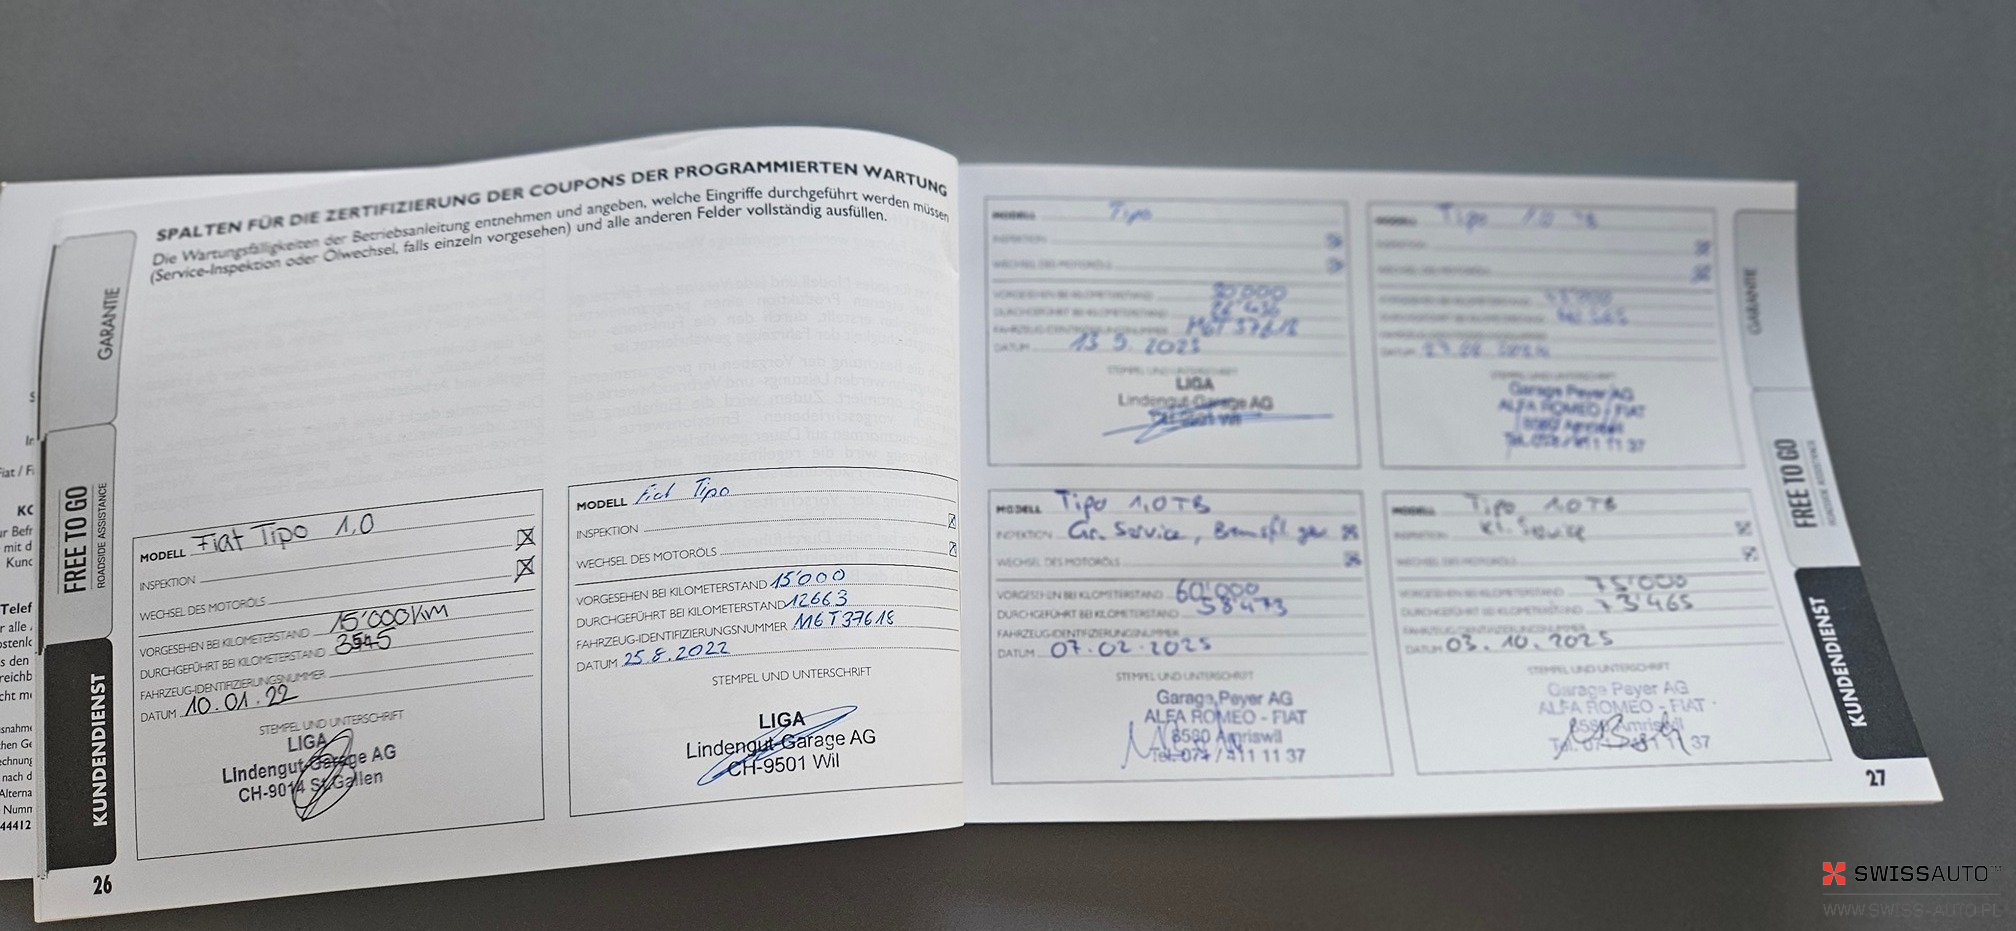 SPALTEN FÜR DIE ZERTIFIZIERUNG DER COUPONS DER PROGRAMMIERTEN WARTUNG
Die Wartungsfälligkeiten der Betriebsanleitung entnehmen und angeben, welche Eingriffe durchgeführt werden müssen
(Service-Inspektion oder Ölwechsel, falls einzeln vorgesehen) und alle anderen Felder vollständig ausfüllen.
GARANTIE
FREE TO GO
ROADSIDE ASSISTANCE
KUNDENDIENST
MODELL Fiat Tipo 1,0
INSPEKTION
WECHSEL DES MOTORÖLS
VORGESEHEN BEI KILOMETERSTAND 15'000 Km
DURCHGEFÜHRT BEI KILOMETERSTAND
FAHRZEUG-IDENTIFIZIERUNGSNUMMER
DATUM 10.01.22
STEMPEL UND UNTERSCHRIFT
LIGA
Lindengut-Garage AG
CH-9014 St.Gallen
MODELL Fiat Tipo
INSPEKTION
WECHSEL DES MOTORÖLS
VORGESEHEN BEI KILOMETERSTAND 15'000
DURCHGEFÜHRT BEI KILOMETERSTAND 12663
FAHRZEUG-IDENTIFIZIERUNGSNUMMER M6T37618
DATUM 25.8.2022
STEMPEL UND UNTERSCHRIFT
LIGA
Lindengut-Garage AG
CH-9501 Wil
26
MODELL Tipo
INSPEKTION
WECHSEL DES MOTORÖLS
VORGESEHEN BEI KILOMETERSTAND
DURCHGEFÜHRT BEI KILOMETERSTAND
FAHRZEUG-IDENTIFIZIERUNGSNUMMER M6T37618
DATUM 13 9. 2023
STEMPEL UND UNTERSCHRIFT
LIGA
Lindengut-Garage AG
Wil
MODELL Tipo 1.0 TB
STEMPEL UND UNTERSCHRIFT
Garage Peyer AG
ALFA ROMEO - FIAT
8580 Amriswil
Tel. 071 / 411 11 37
MODELL Tipo 1,0 TB
INSPEKTION Gr. Service,
WECHSEL DES MOTORÖLS
VORGESEHEN BEI KILOMETERSTAND 60'000
DURCHGEFÜHRT BEI KILOMETERSTAND 58'473
FAHRZEUG-IDENTIFIZIERUNGSNUMMER
DATUM 07.02.2025
STEMPEL UND UNTERSCHRIFT
Garage Peyer AG
ALFA ROMEO - FIAT
8580 Amriswil
Tel. 071 / 411 11 37
MODELL Tipo 1.0 TB
INSPEKTION Kl. Service
WECHSEL DES MOTORÖLS
VORGESEHEN BEI KILOMETERSTAND 75'000
DURCHGEFÜHRT BEI KILOMETERSTAND 73'465
FAHRZEUG-IDENTIFIZIERUNGSNUMMER
DATUM 03.10.2025
STEMPEL UND UNTERSCHRIFT
Garage Peyer AG
ALFA ROMEO - FIAT
8580 Amriswil
Tel. 071 / 411 11 37
GARANTIE
FREE TO GO
ROADSIDE ASSISTANCE
KUNDENDIENST
27
SWISSAUTO
WWW.SWISS-AUTO.PL